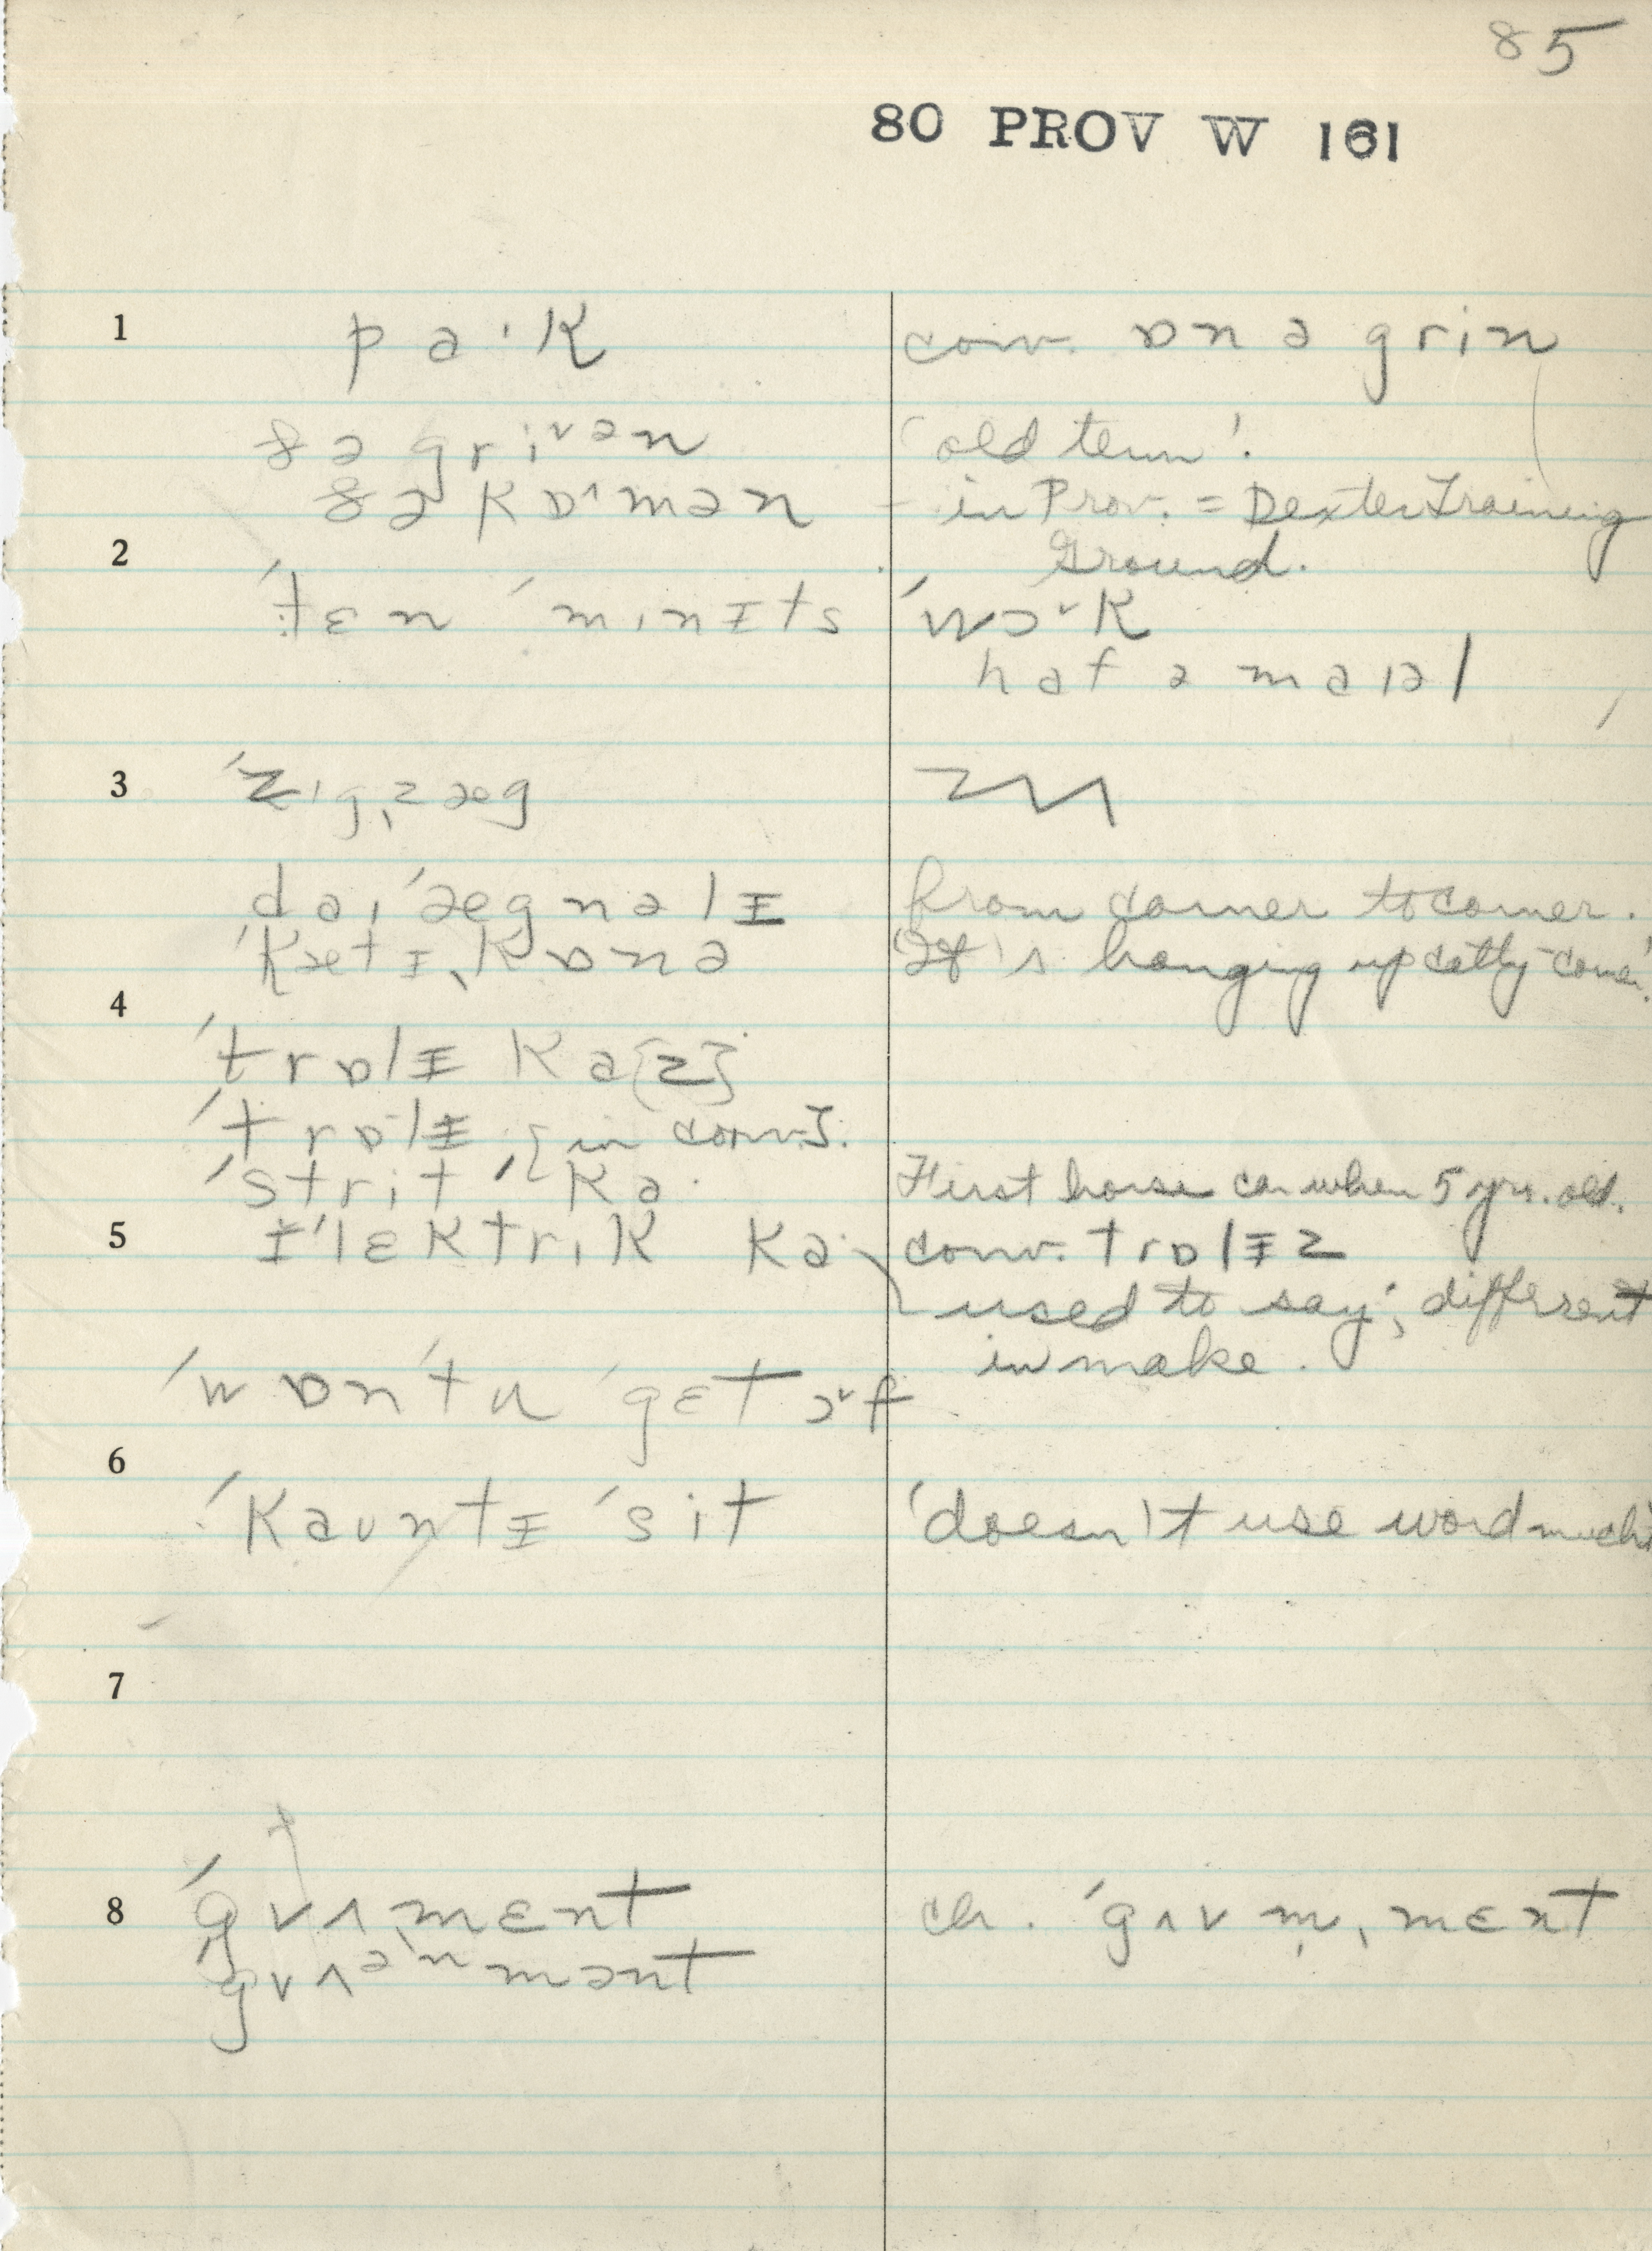 85
80 PROV W 161
1 pa·k conv. ɒn ə grin
ðə griᵛən 'old term'.
ðə kɒˑmən – in Prov. = Dexter Training
2 Ground.
ˈtɛn ˈminɪts ˈwɔ˅k
haf ə maɪəl
3 ˈzigˌzæg
daiˈægnəlɪ from corner to corner.
ˈkætɪˌkɒnə 'It's hanging up catty-corner'.
4
ˈtrɒlɪ ka[z]
ˈtrɒlɪ [in conv.].
ˈstrit ˈka· First horse car when 5 yrs. old.
5 ɪˈlɛktrik ka· conv. trɒlɪz
used to say; different
in make.
ˈwɒnˈtu ˈgɛt ɔ˅f
6
ˈkauntɪ ˈsit 'doesn't use word much'
7
8 ˈgv^ˌmɛnt ch. ˈgʌvm̩ˌmɛnt
ˈgv^ənmənt